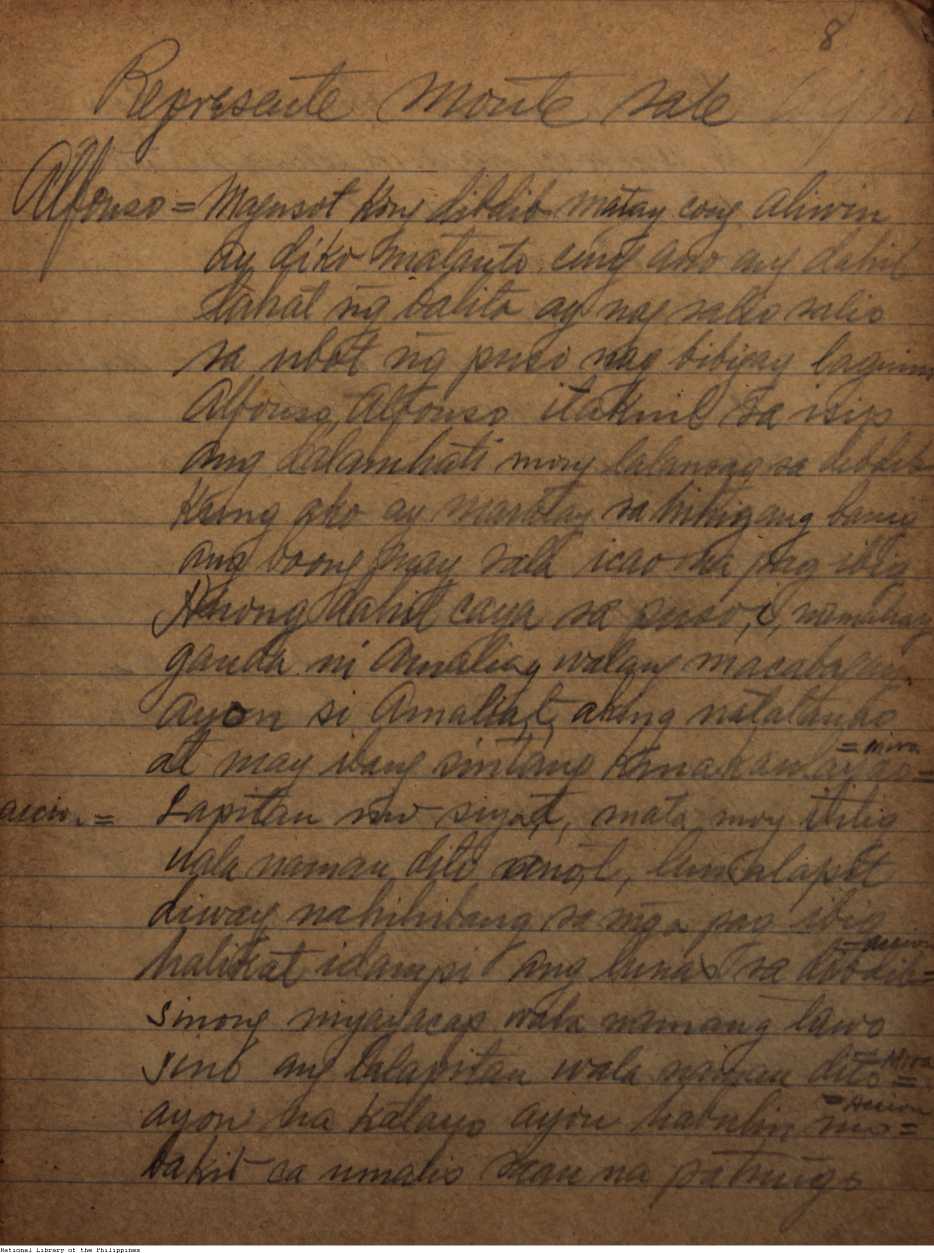 8
Represente Monte sale
Alfonso = Mgusot kong dibdib matay cong aliwin
ay diko matanto cung ano ang dahil
lahat ng balita ay nag salio salio
sa ubot ng puso nag bibigay lagim
Alfonso, Alfonso itaknil sa isip
ang dalamhati mong lalanrag sa dibdib
Kung ako ay maratay sa hihigang banig
ang boong may sala icao na pag ibig
Anong dahil caya sa puso, i, namahay
ganda ni Amalia, walang macabagay
ayon si Amalia, t, aking natatanao
at may ibang sintang kinakaulayao =
= mira
accion = Lapitan mo siya, t, mata moy ititig
uala naman dito ano, t, lumalapit
diway nahihibang sa mga pag ibig
halikat idampi ang lunas sa dibdib =
accion
sinong niyayacap wala namang tawo
sino ang lalapitan wala naman dito =
= Mira
ayon na kalayo ayon habulin mo =
= Accion
bakit ca umalis saan na patungo
National Library of the Philippines